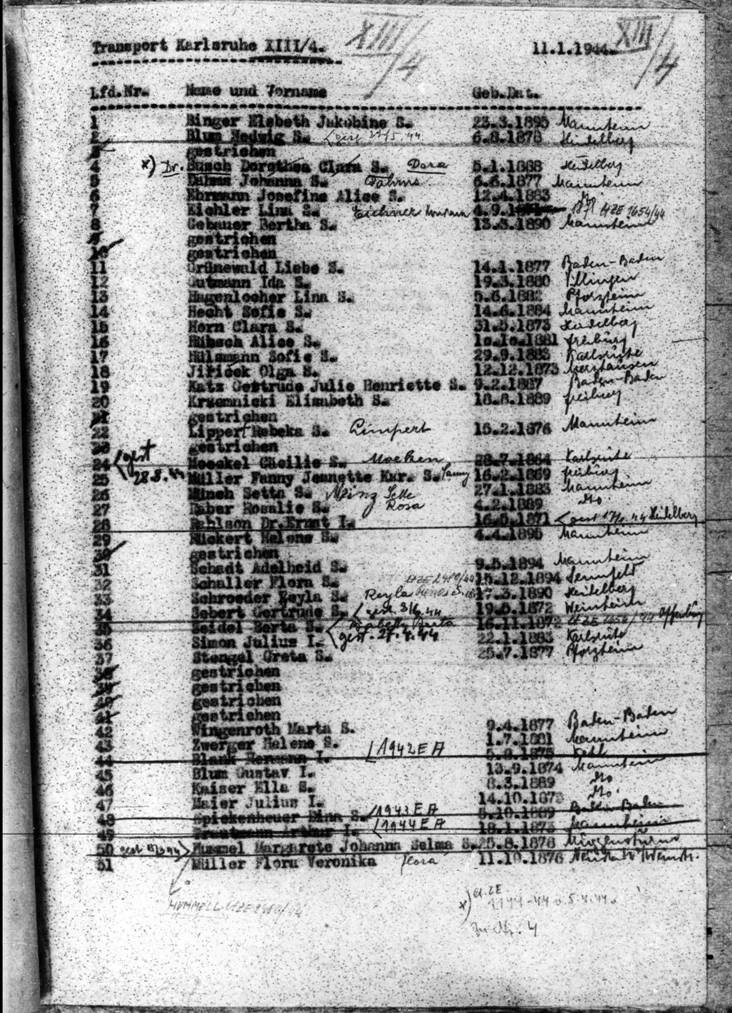 XIII/4
XIII/4
Transport Karlsruhe XIII/4. 11.1.1944.
Lfd.Nr. Name und Vorname Geb.Dat.
1 Binger Elsbeth Jakobine S. 23.3.1895 Mannheim
2 Blum Hedwig S. 6.8.1878 Heidelberg
3 gestrichen
4 x) Dr. Busch Dorothea Clara S. Dora 5.1.1888 Heidelbg
5 Johanna S. 6.6.1877 Mannheim
6 Ehrmann Josefine Alice S. 12.4.1883 do
7 Eichler Lina S. 4.9. HZE 1654/44
8 Gebauer Bertha S. 13.3.1890 Mannheim
9 gestrichen
10 gestrichen
11 Grünewald Liebe S. 14.1.1877 Baden-Baden
12 Gutmann Ida S. 19.3.1880 Villingen
13 Hagenlocher Lina S. 5.6.1882 Pforzheim
14 Hecht Sofie S. 14.6.1884 Mannheim
15 Horn Clara S. 31.5.1873 Heidelberg
16 Hübsch Alice S. 10.10.1881 Freiburg
17 Hülsmann Sofie S. 29.9.1883 Karlsruhe
18 Jiřiček Olga S. 12.12.1873 Merzhausen
19 Katz Gertrude Julie Henriette S. 9.2.1887 Baden-Baden
20 Krzemnicki Elisabeth S. 18.8.1889 Freiburg
21 gestrichen
22 Lippert Rebeka S. Limpert 15.2.1876 Mannheim
23 gestrichen
24 gest 28.8.44 Moeckel Cäcilie S. 28.7.1864 Karlsruhe
25 Müller Fanny Jeanette Kar. S. Fanny 16.2.1869 Freiburg
26 Setta S. 27.1.1883 Mannheim
27 Rosalie S. Rosa 4.2.1889 do
28 Dr. Ernst I. 16.5.1871 Heidelberg
29 Rückert Helene S. 4.4.1895 Mannheim
30 gestrichen
31 Schadt Adelheid S. 9.5.1894 Mannheim
32 Schaller Flora S. 15.12.1894 Sennfeld
33 Schroeder Reyla S. Reyla 17.3.1890 Heidelberg
34 Sebert Gertrude S. 19.5.1872 Weinheim
35 Seidel Berta S. 16.11.1872 HZE 1654/44 Offenburg
36 Simon Julius I. gest. 27.4.44 22.1.1883 Karlsruhe
37 Stengel Greta S. 25.7.1877 Pforzheim
38 gestrichen
39 gestrichen
40 gestrichen
41 gestrichen
42 Wingenroth Marta S. 9.4.1877 Baden-Baden
43 Zwerger Helene S. 1.7.1881 Mannheim
44 Blank Hermann I. 1942 EA Kehl
45 Blum Gustav I. 13.9.1874 Mannheim
46 Kaiser Ella S. 8.3.1889 do
47 Maier Julius I. 14.10.1878 do.
48 Spickenheuer Dina S. 1943 EA 5.10.1889 Baden-Baden
49 Arthur I. 1944 EA 18.1.1875 Mannheim
50 Hummel Margarete Johanna Selma S. 25.8.1876
51 Müller Flora Veronika Flora 11.10.1876
x)
zu Nr. 4